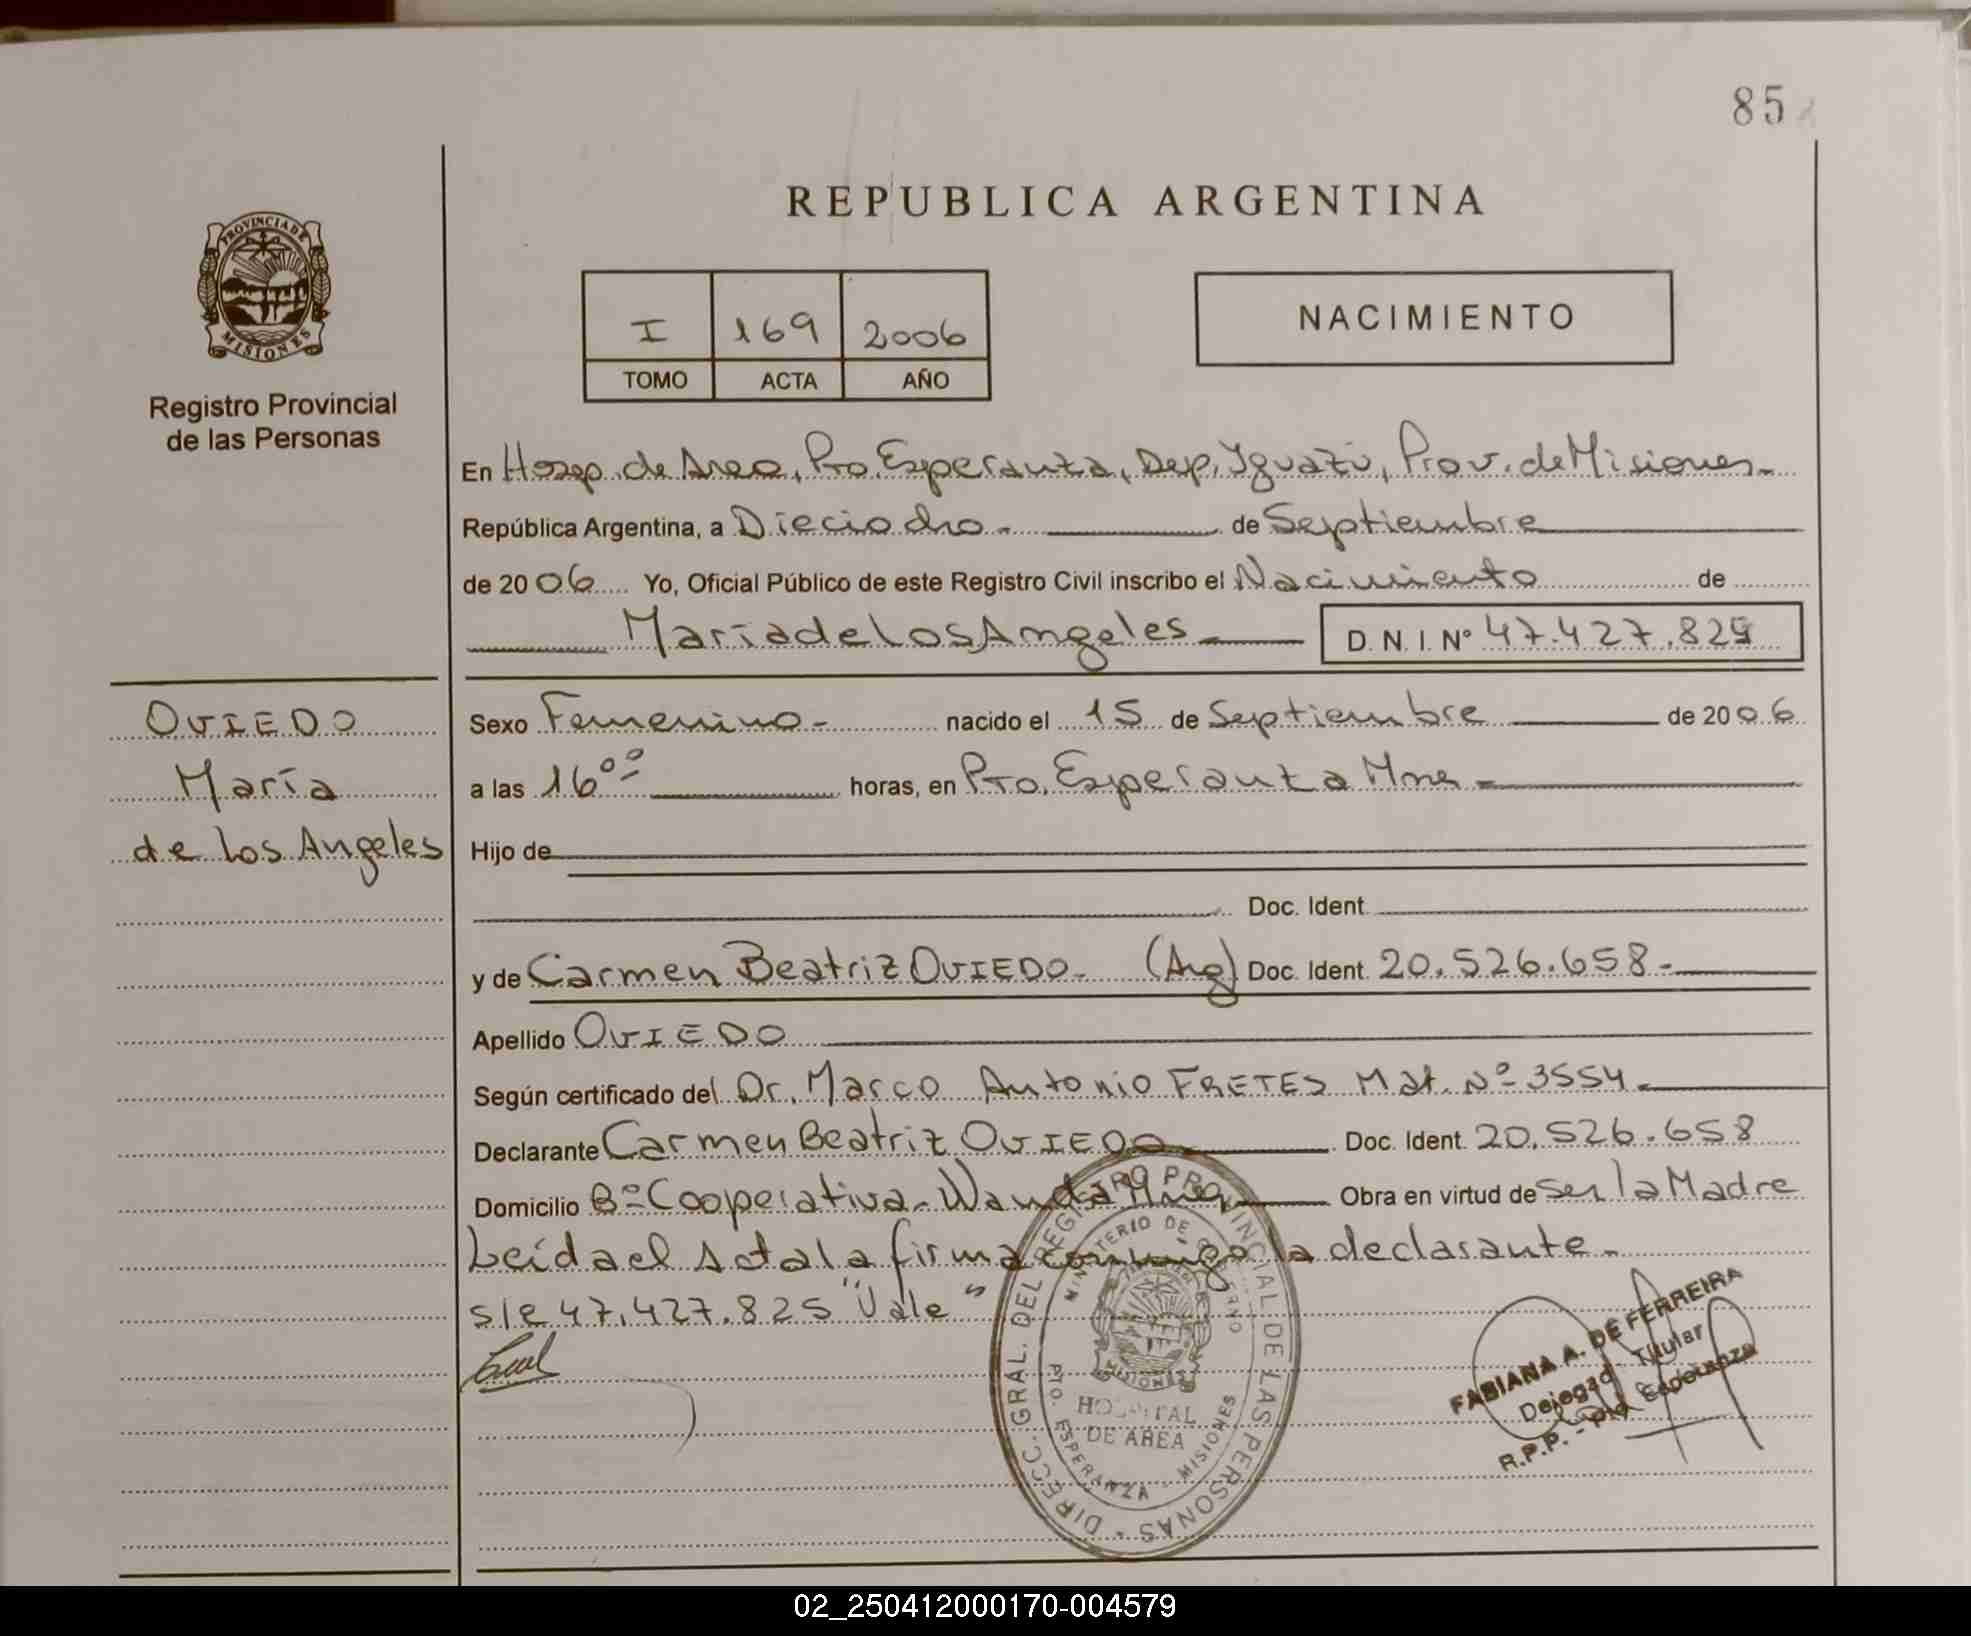 85
PROVINCIA DE
MISIONES
Registro Provincial
de las Personas
REPUBLICA ARGENTINA
I 169 2006
TOMO ACTA AÑO
NACIMIENTO
En Hosp. de Area, Pto. Esperanza, Dep. Iguazú, Prov. de Misiones.-
República Argentina, a Dieciocho.- de Septiembre
de 2006 Yo, Oficial Público de este Registro Civil inscribo el Nacimiento de
María de Los Angeles D.N.I. Nº 47.427.825
OVIEDO
María
de Los Angeles
Sexo Femenino- nacido el 15 de Septiembre de 2006
a las 16ºº horas, en Pto. Esperanza Mnes-
Hijo de
Doc. Ident.
y de Carmen Beatriz OVIEDO- (Arg) Doc. Ident. 20.526.658-
Apellido OVIEDO
Según certificado del Dr. Marco Antonio FRETES Mat. Nº 3554-
Declarante Carmen Beatriz OVIEDO Doc. Ident. 20.526.658
Domicilio Bº Cooperativa- Wanda Mnes Obra en virtud de Ser la Madre
Leída el Acta la firma conmigo la declarante-
s/e 47.427.825 "Vale"
DIRECC. GRAL. DEL REGISTRO PROVINCIAL DE LAS PERSONAS
MINISTERIO DE GOBIERNO
MISIONES
HOSPITAL
DE AREA
PTO. ESPERANZA - MISIONES
FABIANA A. DE FERREIRA
Delegad Titular
R.P.P. - Pto. Esperanza
02_250412000170-004579